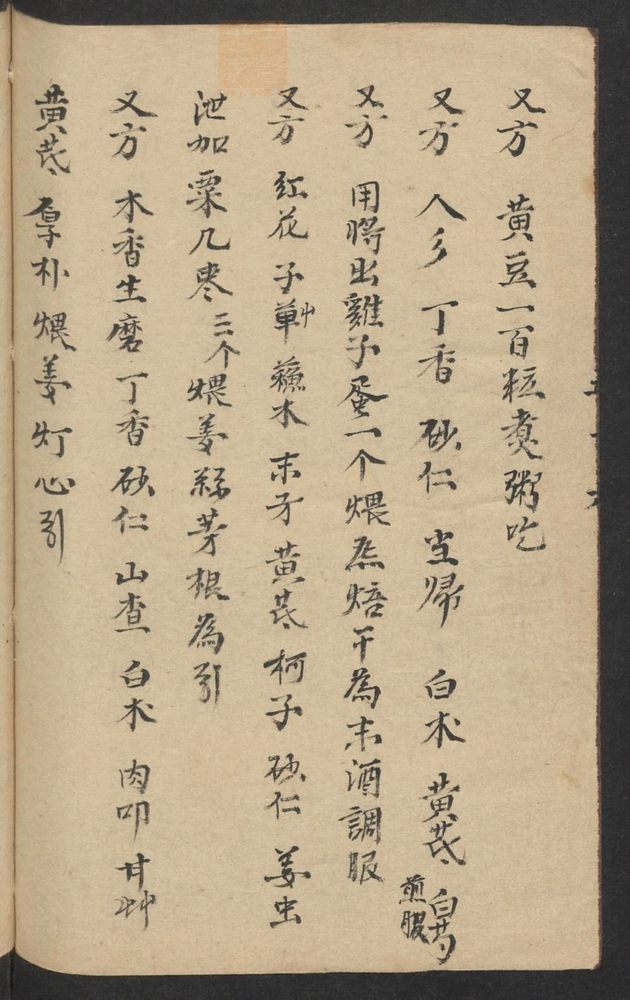 又方 黄豆一百粒煑粥吃
又方 人乡 丁香 砂仁 当歸 白术 黄芪 白芍 煎服
又方 用將出雞子蛋一个煨焦焙干為末酒調服
又方 红花 子草 蘓木 末才 黄芪 柯子 砂仁 姜虫
泄加粟几枣三个煨姜 茅根為引
又方 木香生磨丁香砂仁 山查 白术 肉叩 甘艸
黄芪 厚朴煨姜灯心引